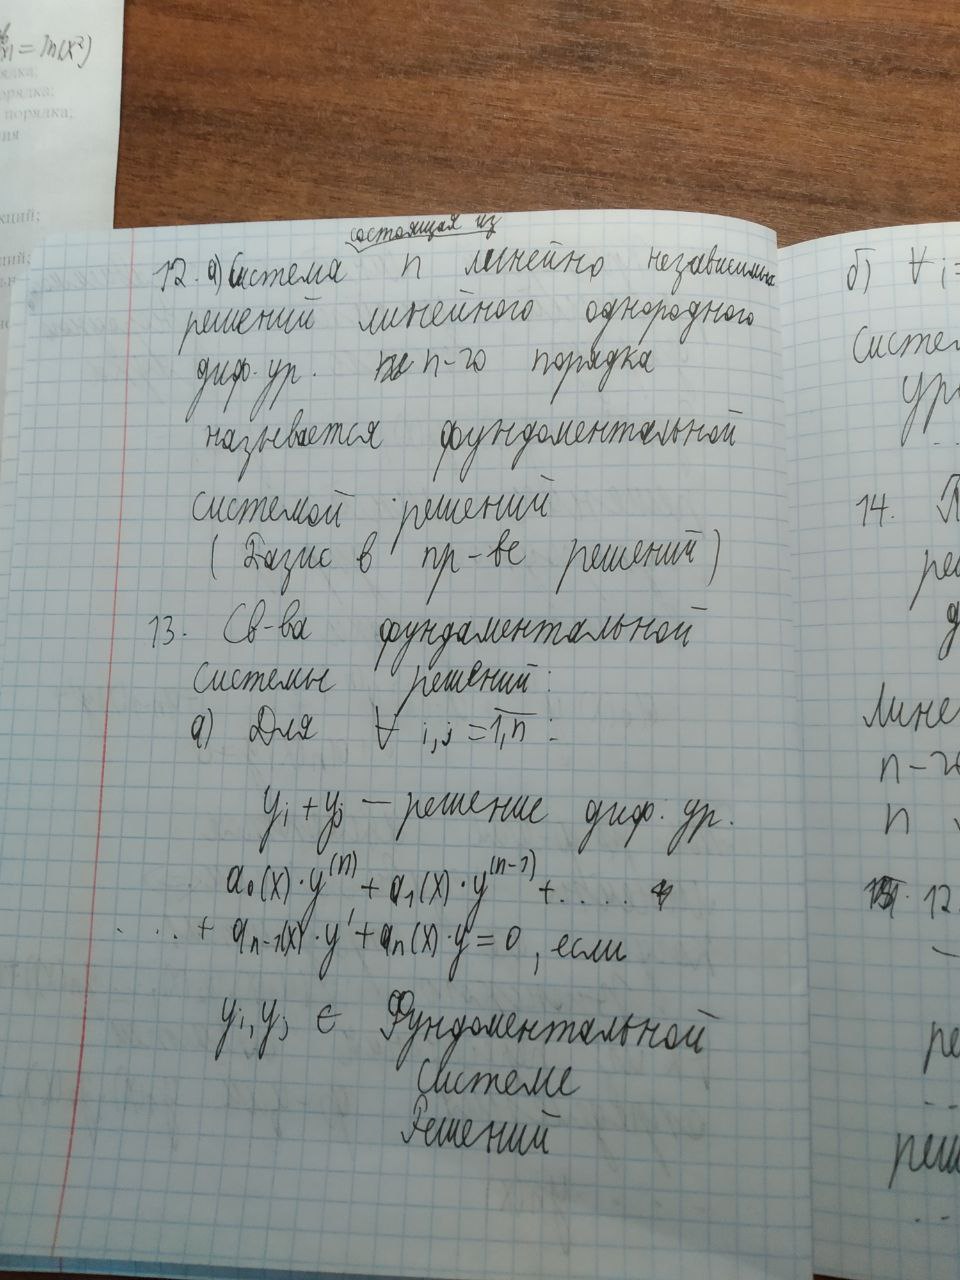 = ln(x²)
рядка;
орядка;
порядка;
ния
кций;
ций;
состоящая из
12. а) Система n линейно независимых
решений линейного однородного
диф. ур. n-го порядка
называется фундоментальной
системой решений
(Базис в пр-ве решений)
13. Св-ва фундаментальной
системы решений:
а) Для ∀ i,j = 1,n :
yi + yj — решение диф. ур.
a₀(x)·y⁽ⁿ⁾ + a₁(x)·y⁽ⁿ⁻¹⁾ + ....
.... + aₙ₋₁(x)·y' + aₙ(x)·y = 0, если
yi, yj ∈ Фундоментальной
Системе
Решений
б) ∀ i =
систем
ур
14.
ре
д
Лине
n-го
n
12.
ре
реш